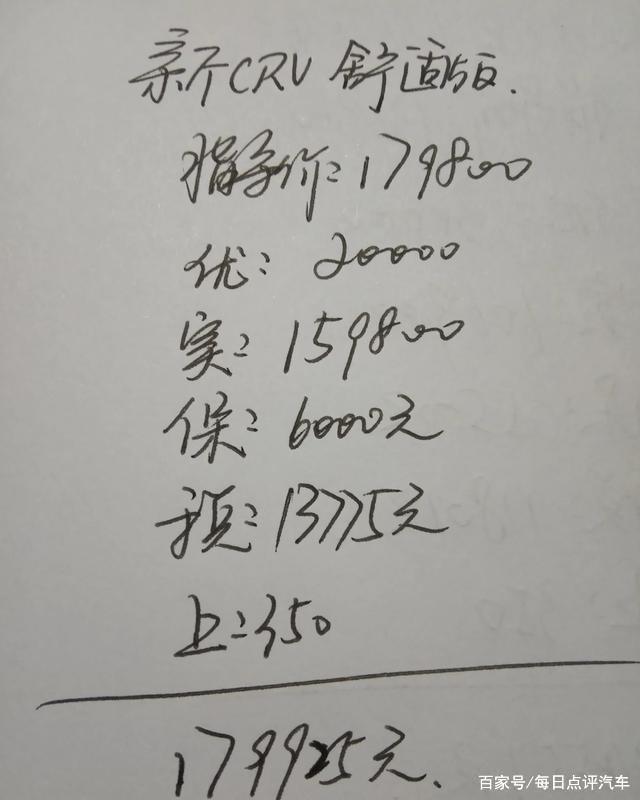 新CRV 舒适版.
指导价: 179800
优: 20000
实: 159800
保: 6000元
预: 13775元
上: 350
179925元.
百家号/每日点评汽车